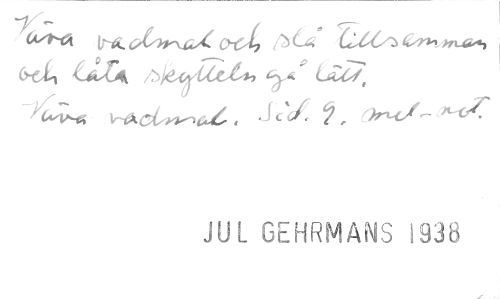 Väva vadmal och slå tillsamman
och låta skytteln gå lätt.
Väva vadmal. Sid. 9. mel-not.
JUL GEHRMANS 1938